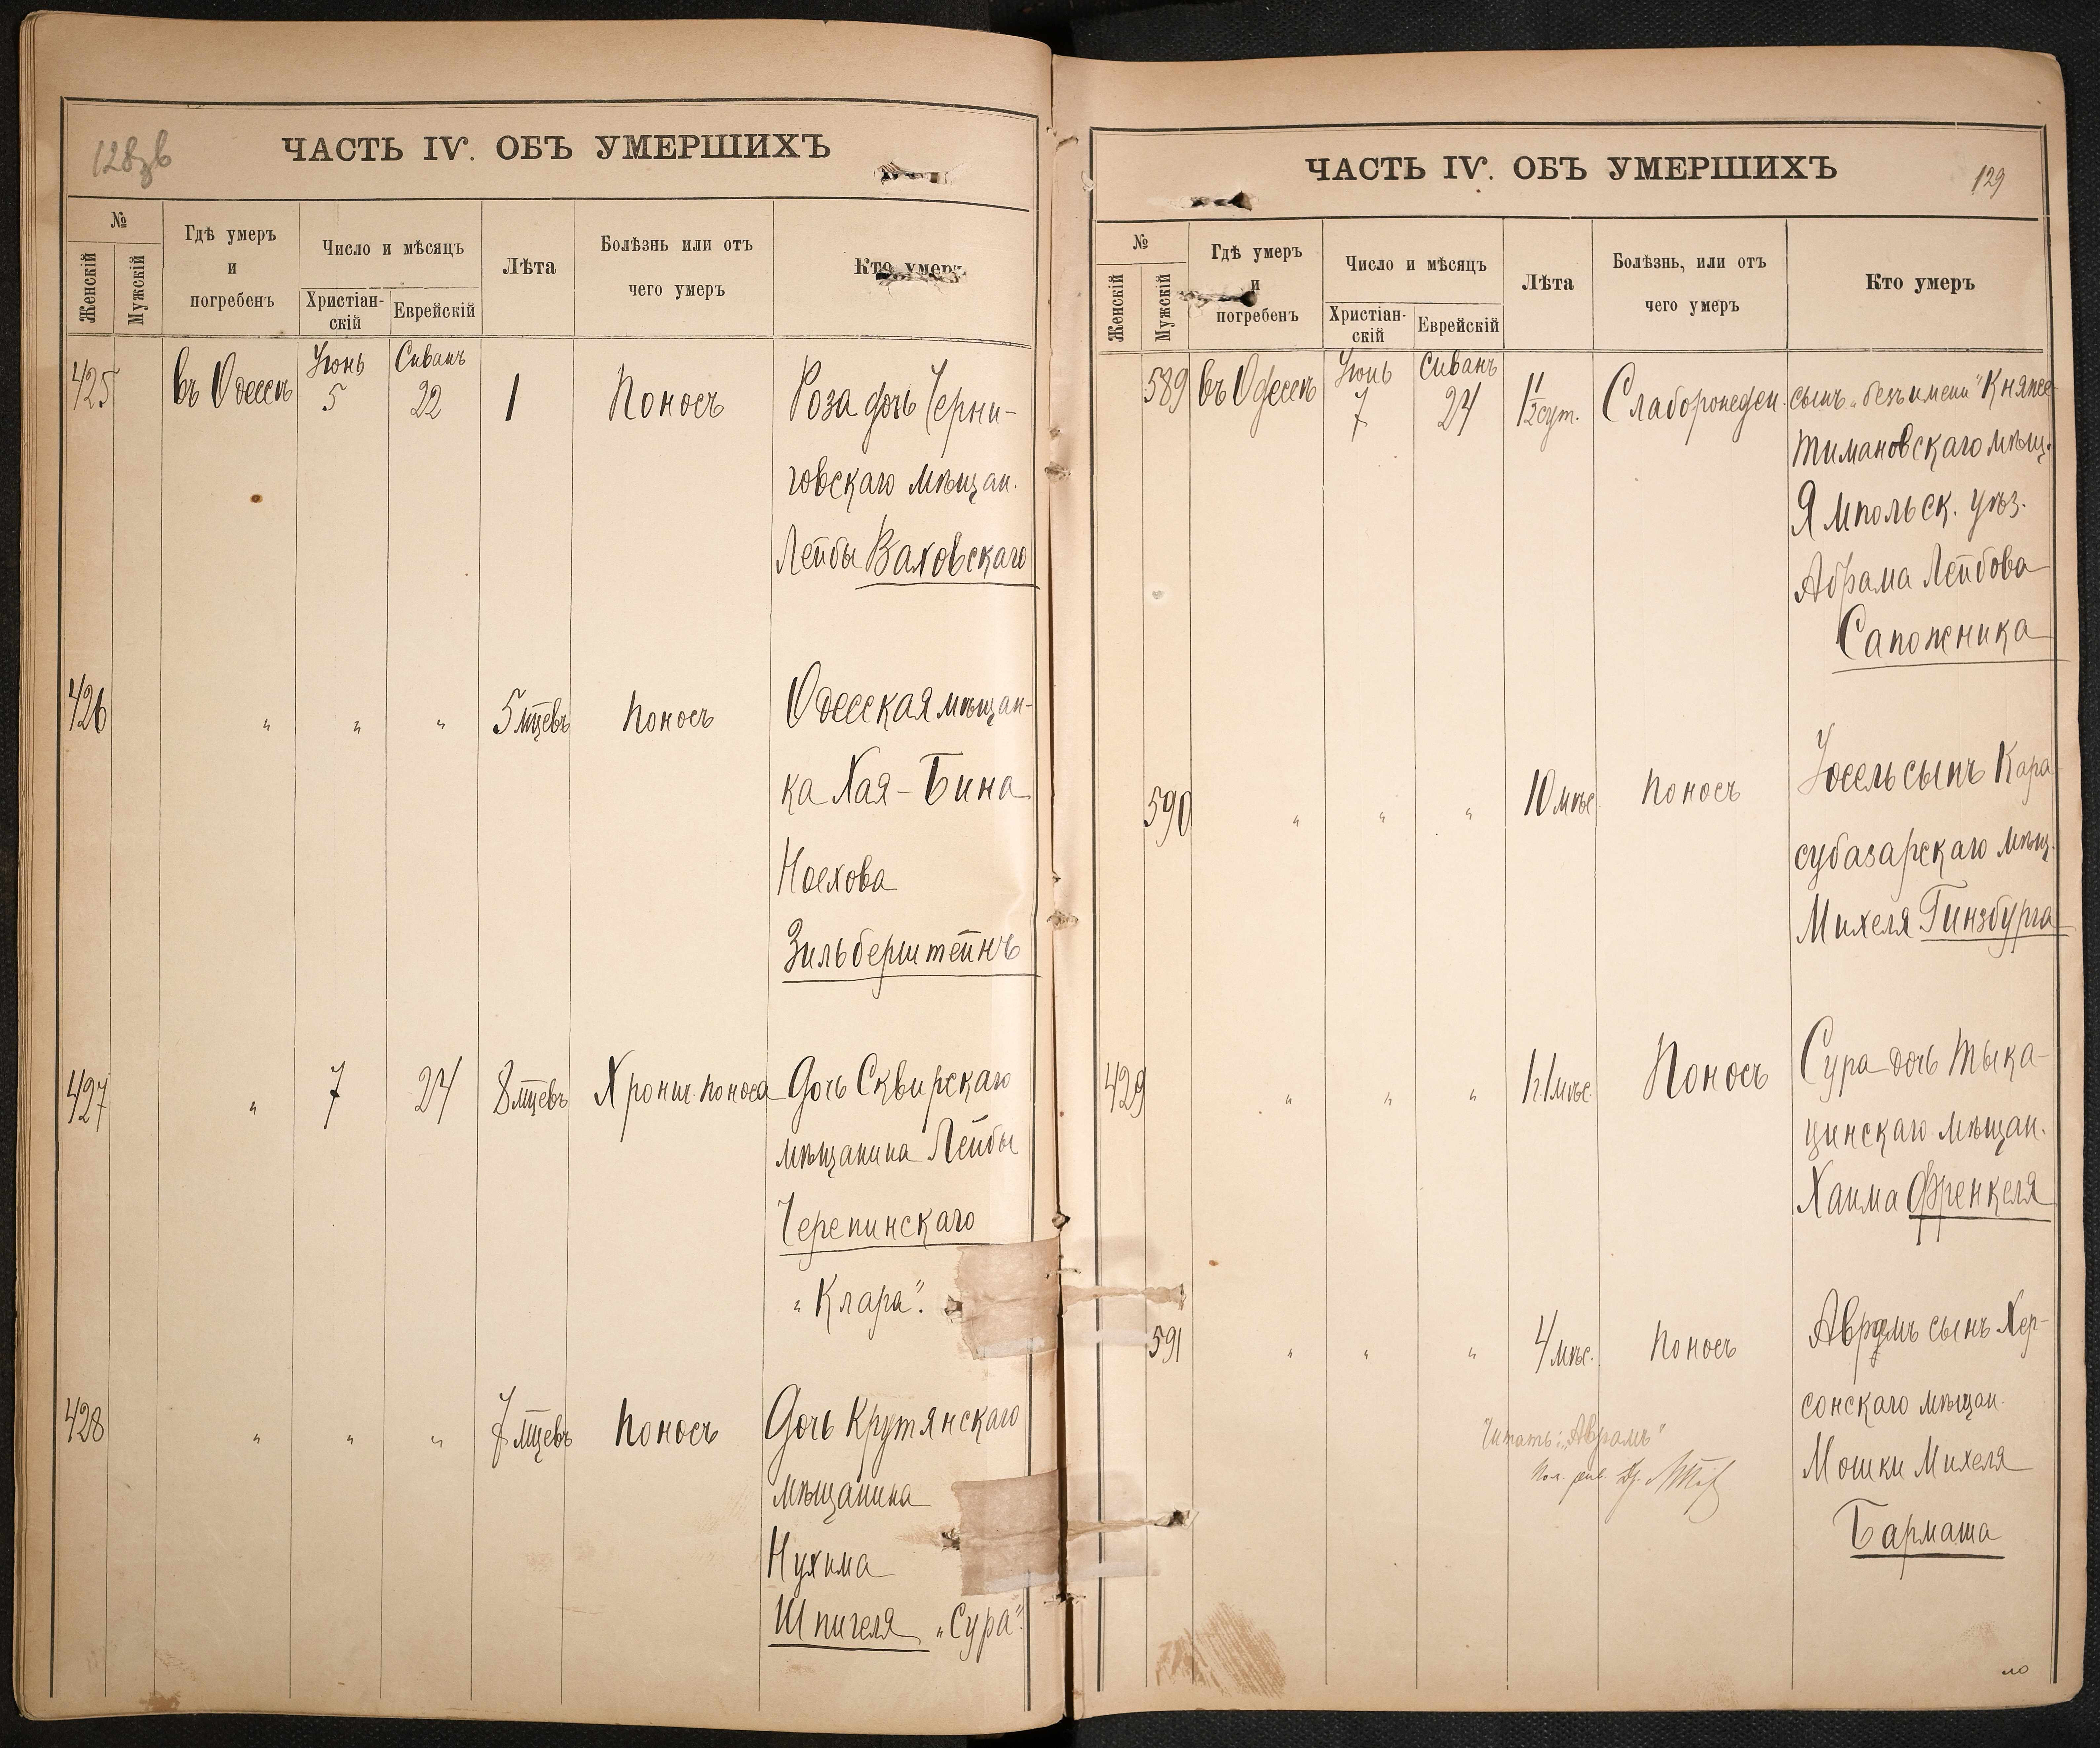 128зв
ЧАСТЬ IV. ОБЪ УМЕРШИХЪ
№
Женскій
Мужскій
Гдѣ умеръ
и
погребенъ
Число и мѣсяцъ
Христіан-
скій
Еврейскій
Лѣта
Болѣзнь или отъ
чего умеръ
Кто умеръ
425 въ Одессѣ Іюнь 5 Сиванъ 22 1 Поносъ Роза дочь Черни-
говскаго мѣщан.
Лейбы Ваховскаго
426 " " " 5 мцевъ Поносъ Одесская мѣщан-
ка Хая-Бина
Ноехова
Зильберштейнъ
427 " 7 24 8 мцевъ Хронич. поноса Дочь Сквирскаго
мѣщанина Лейбы
Черепинскаго
"Клара".
428 " " " 7 мцевъ Поносъ Дочь Крутянскаго
мѣщанина
Нухима
Шпигеля "Сура".
129
ЧАСТЬ IV. ОБЪ УМЕРШИХЪ
№
Женскій
Мужскій
Гдѣ умеръ
и
погребенъ
Число и мѣсяцъ
Христіан-
скій
Еврейскій
Лѣта
Болѣзнь, или отъ
чего умеръ
Кто умеръ
589 въ Одессѣ Іюнь 7 Сиванъ 24 1 1/2 сут. Слаборожден. сынъ "безъ имени" Княже-
тимановскаго мѣщ.
Ямпольск. уѣз.
Абрама Лейбова
Сапожника
590 " " " 10 мѣс. Поносъ Іосель сынъ Кара-
субазарскаго мѣщ.
Михеля Гинзбурга
429 " " " 1 г. 1 мѣс. Поносъ Сура дочь Тыка-
цинскаго мѣщан.
Хаима Френкеля
591 " " " 4 мѣс. Поносъ Аврумъ сынъ Хер-
сонскаго мѣщан.
Мошки Михеля
Бармаша
Читать: "Аврамъ"